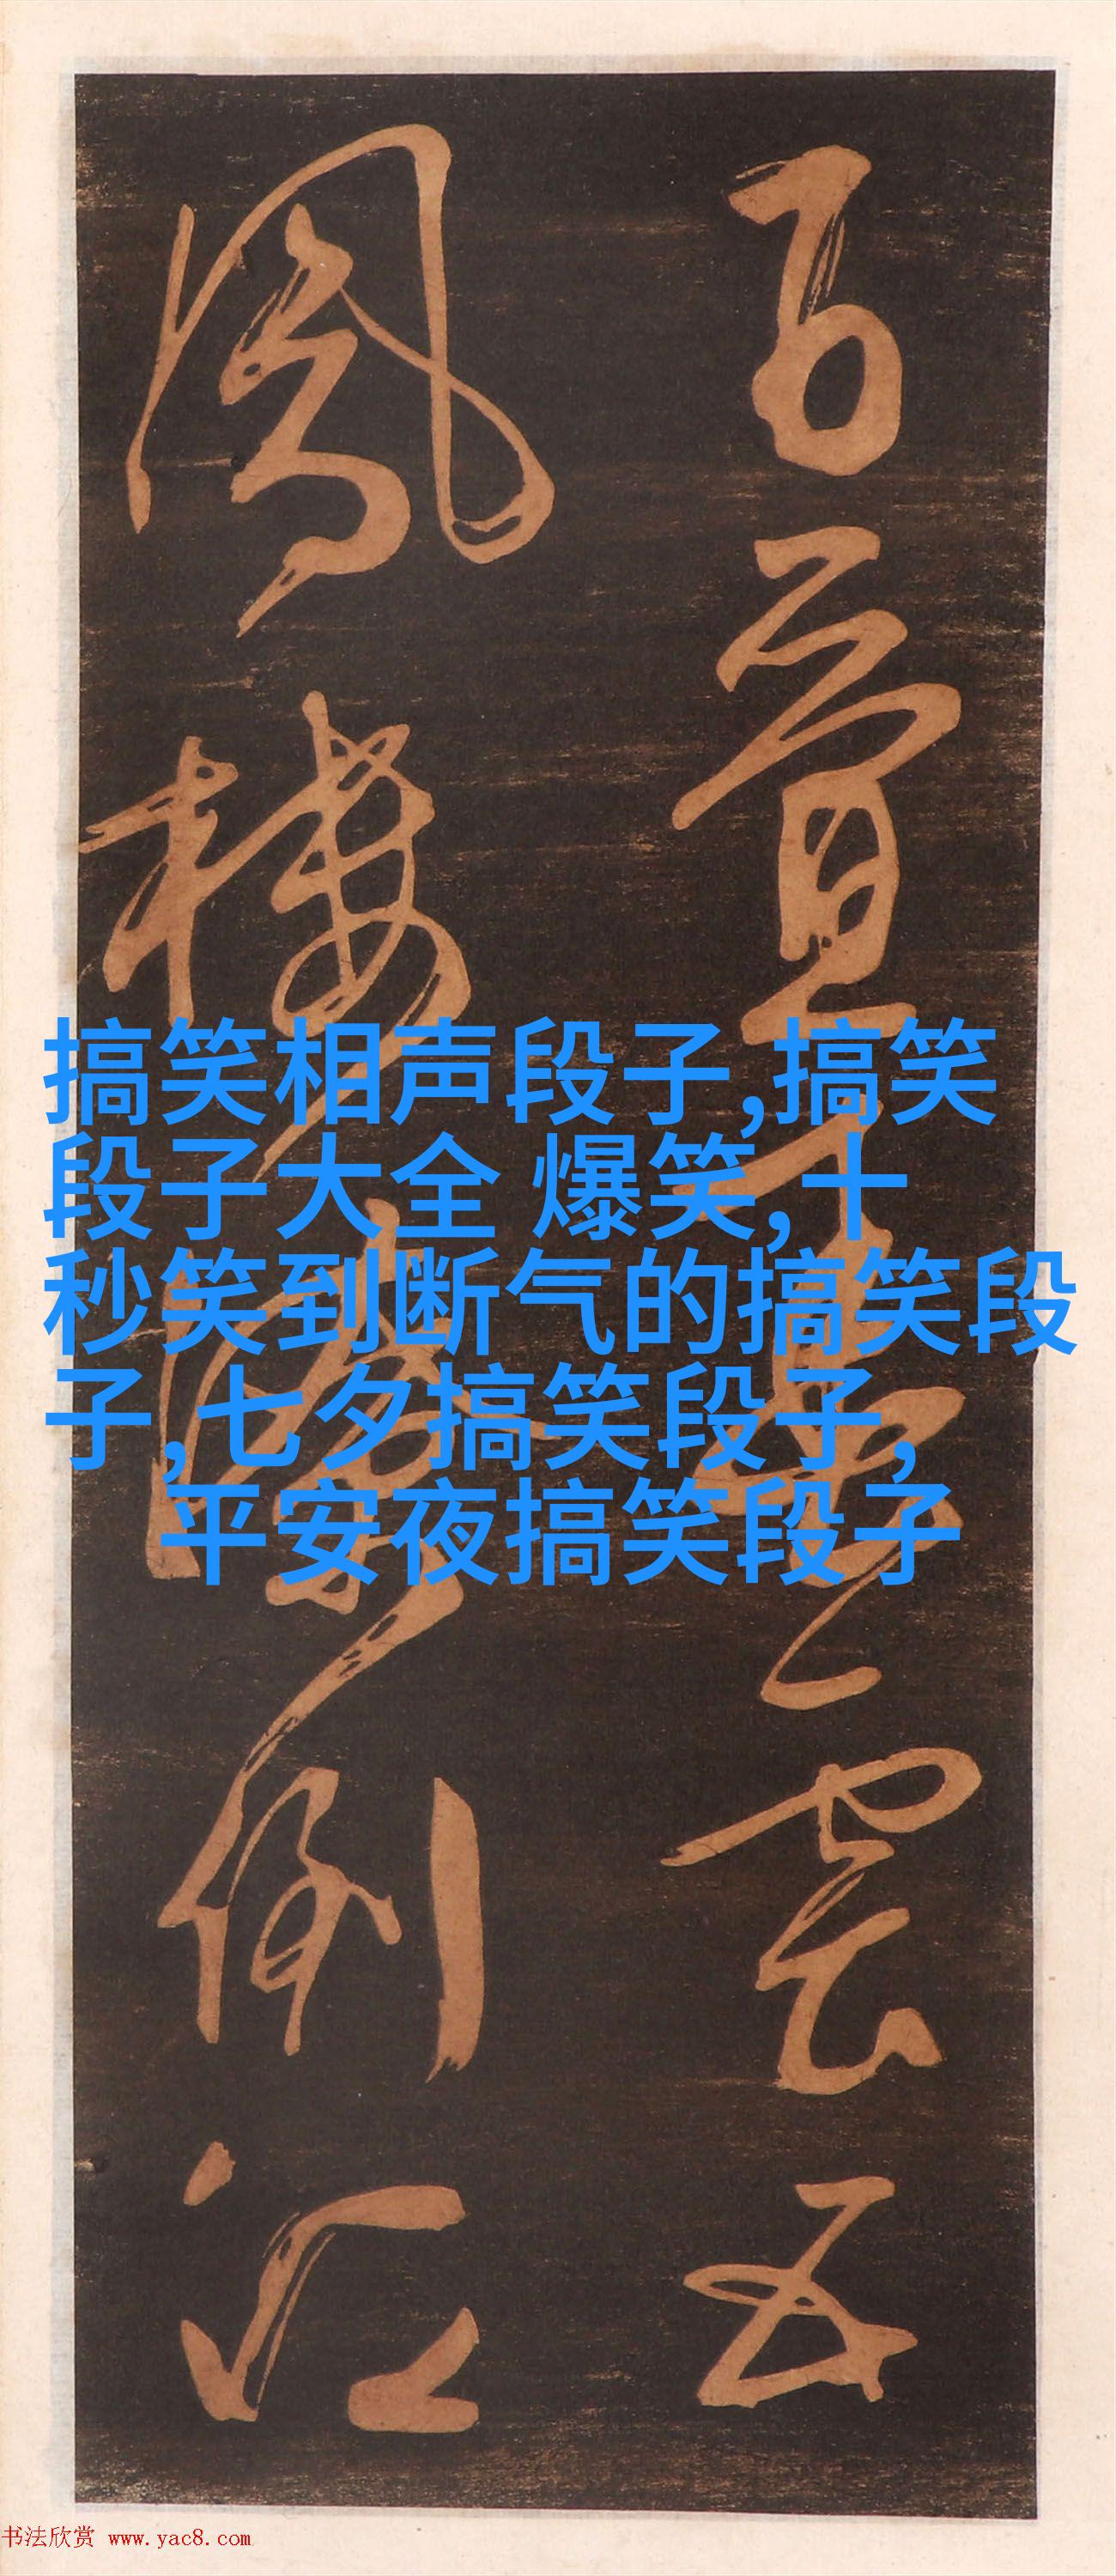 五
鳳樓
搞笑相声段子,搞笑
段子大全 爆笑,十
秒笑到断气的搞笑段
子,七夕搞笑段子,
平安夜搞笑段子
书法欣赏 www.yac8.com